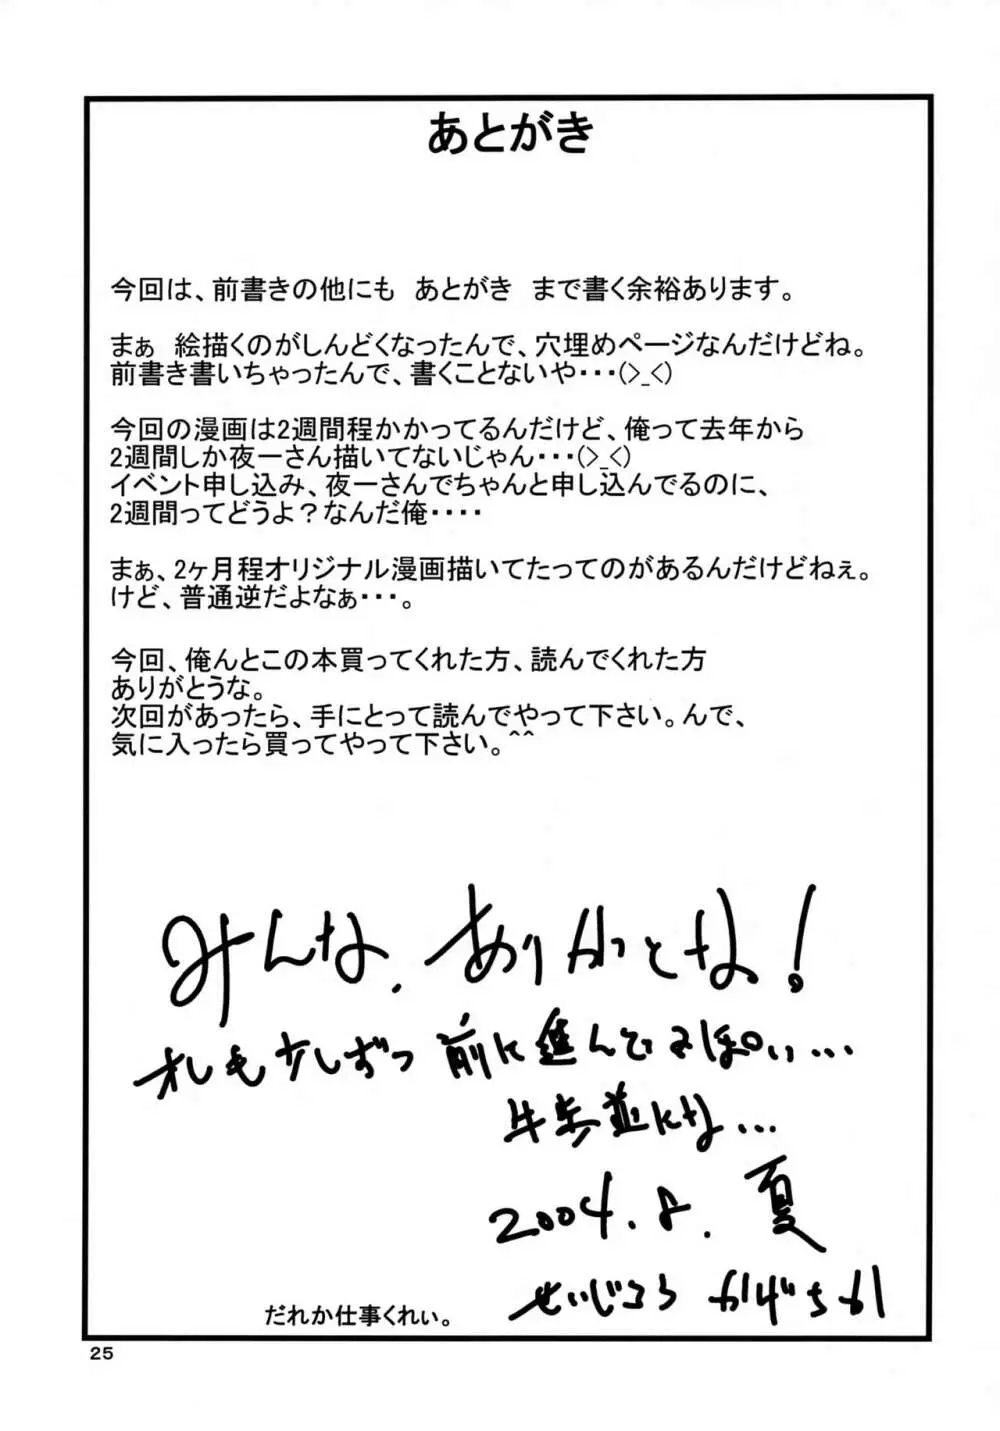 あとがき
今回は、前書きの他にも　あとがき　まで書く余裕あります。
まぁ　絵描くのがしんどくなったんで、穴埋めページなんだけどね。
前書き書いちゃったんで、書くことないや・・・(>_<)
今回の漫画は2週間程かかってるんだけど、俺って去年から
2週間しか夜一さん描いてないじゃん・・・(>_<)
イベント申し込み、夜一さんでちゃんと申し込んでるのに、
2週間ってどうよ？なんだ俺・・・・
まぁ、2ヶ月程オリジナル漫画描いてたってのがあるんだけどねぇ。
けど、普通逆だよなぁ・・・。
今回、俺んとこの本買ってくれた方、読んでくれた方
ありがとうな。
次回があったら、手にとって読んでやって下さい。んで、
気に入ったら買ってやって下さい。^^
みんな、ありがとな！
オレも少しずつ前に進んでるっぽい...
牛歩並にな...
2004.8.夏
せいじろう かげちか
だれか仕事くれぃ。
25